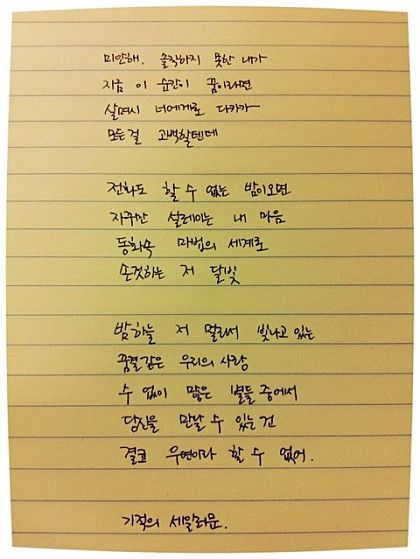 미안해. 솔직하지 못한 내가
지금 이 순간이 꿈이라면
살며시 너에게로 다가가
모든걸 고백할텐데
전화도 할 수 없는 밤이오면
자꾸만 설레이는 내 마음
동화속 마법의 세계로
손짓하는 저 달빛
밤하늘 저 멀리서 빛나고 있는
꿈결같은 우리의 사랑
수 없이 많은 별들 중에서
당신을 만날 수 있는건
결코 우연이라 할 수 없어.
기적의 세일러문.